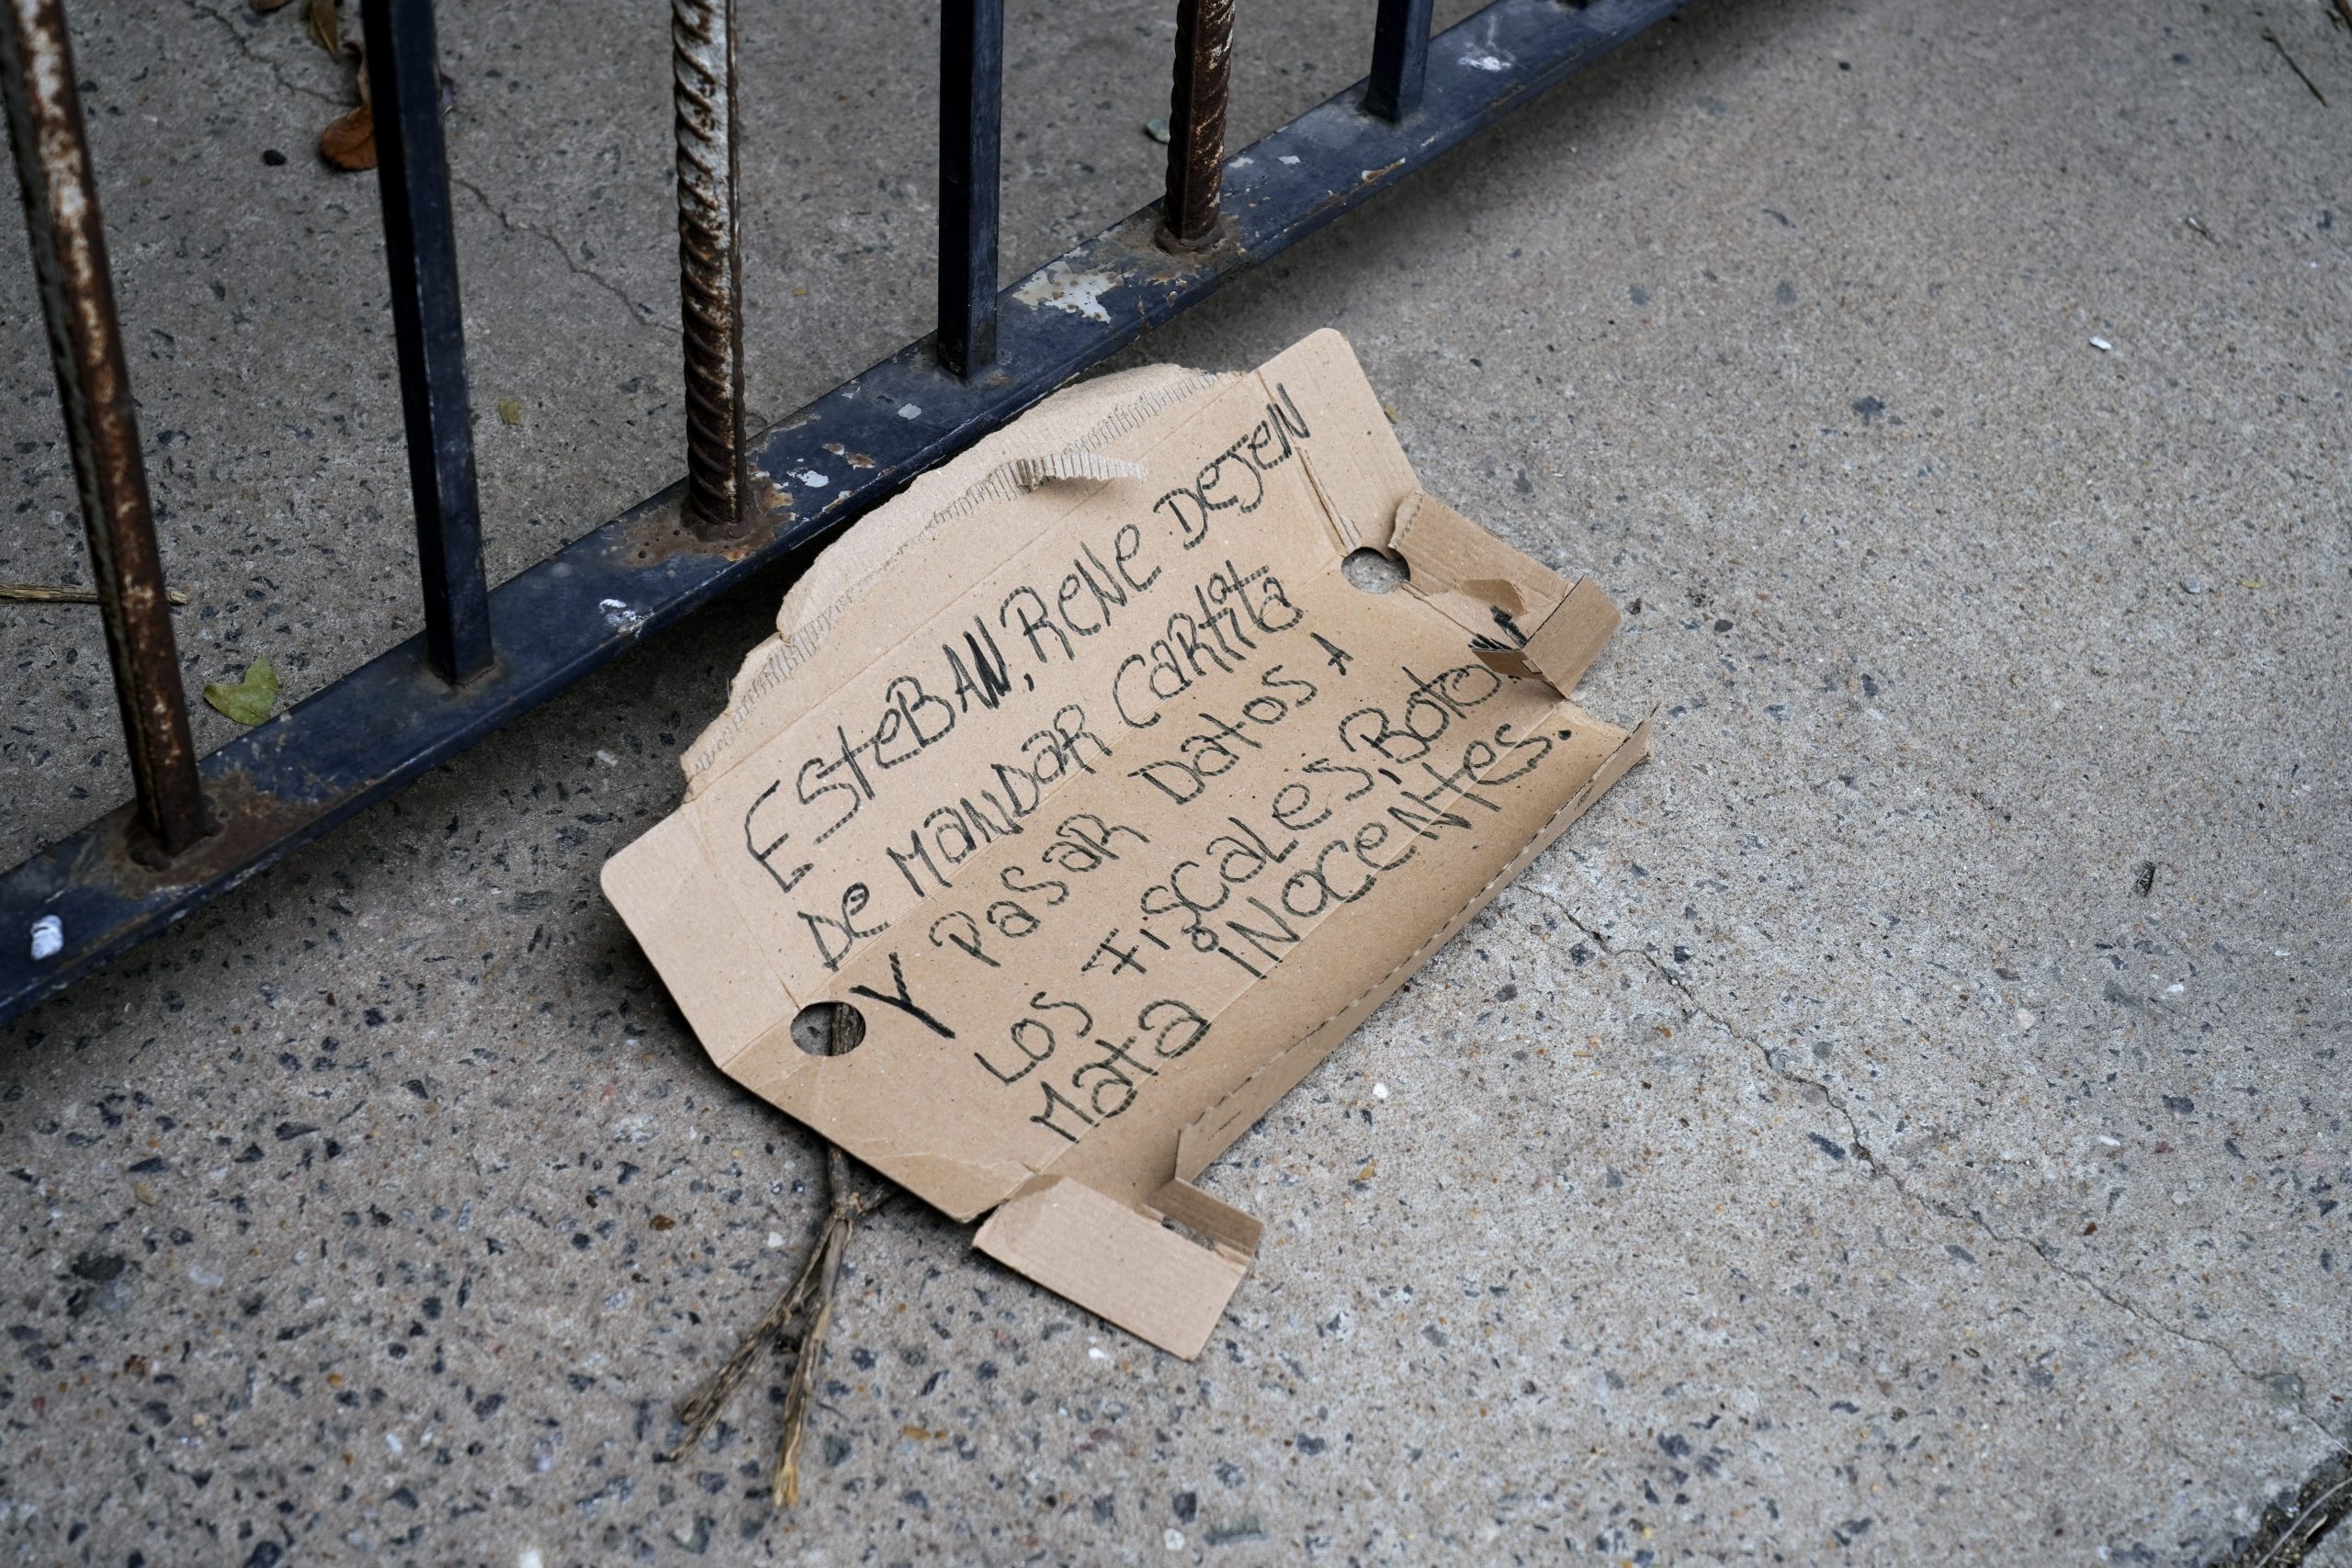 ESteBAN, ReNe DeJeN
De MaNDaR CaRtita
Y PaSaR Datos A
Los FiscaLes, Boto
Mata iNoceNtes.